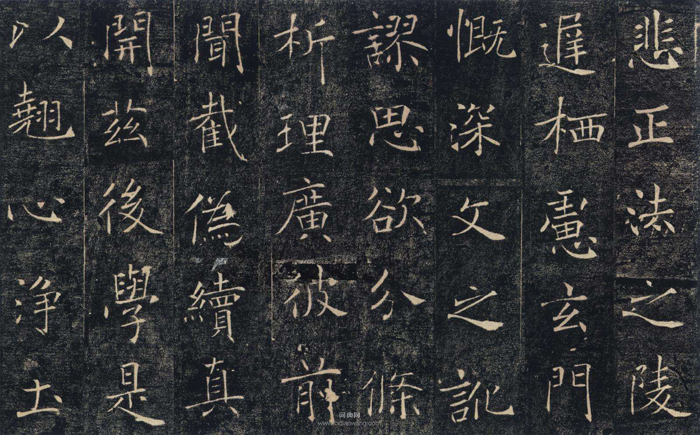 悲正法之陵
遲栖慮玄門
慨深文之訛
謬思欲分條
析理廣彼前
聞截偽續真
開茲後學是
以翹心淨土
词典网
www.cidianwang.com